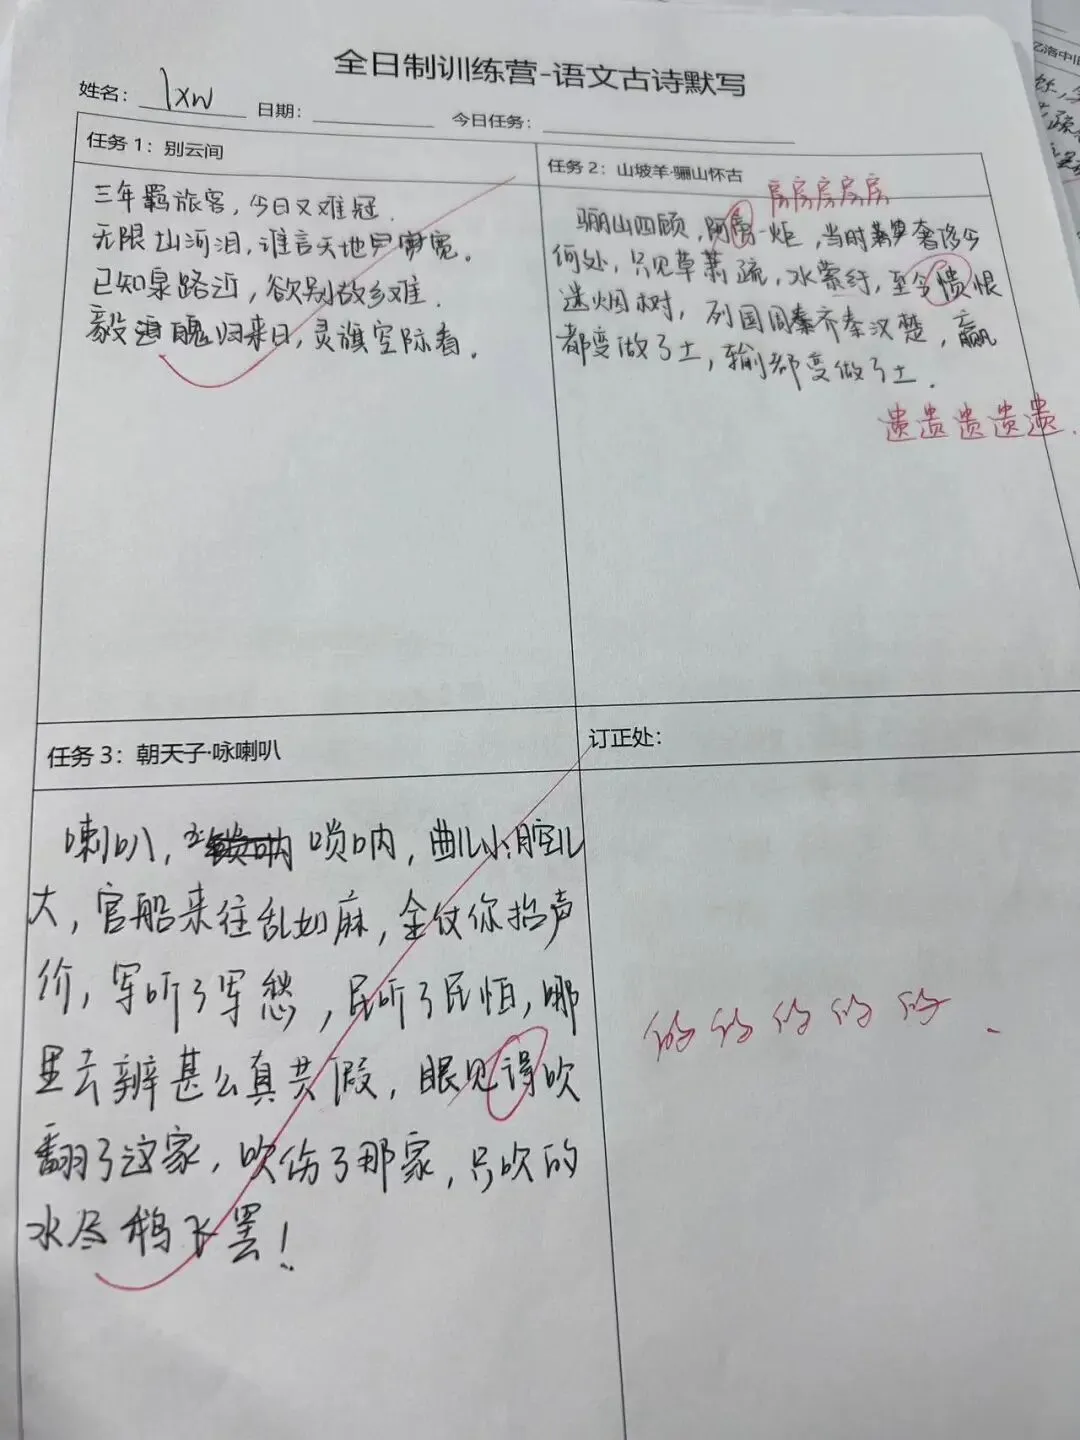 全日制训练营-语文古诗默写
姓名： lxw 日期： 今日任务：
任务1：别云间
三年羁旅客，今日又难冠．
无限山河泪，谁言天地宽。
已知泉路近，欲别故乡难．
毅魄归来日，灵旗空际看．
任务2：山坡羊·骊山怀古
房房房房房
骊山四顾，阿房一炬，当时奢侈今
何处，只见草萧疏，水萦纡，至今愤恨
迷烟树，列国周秦齐秦汉楚，赢
都变做了土，输都变做了土．
遗遗遗遗遗．
任务3：朝天子·咏喇叭
喇叭，唢呐，曲儿小腔儿
大，官船来往乱如麻，全仗你抬声
价，军听了军愁，民听了民怕，哪
里去辨甚么真共假，眼见得吹
翻了这家，吹伤了那家，只吹的
水尽鹅飞罢！
订正处：
的的的的的．